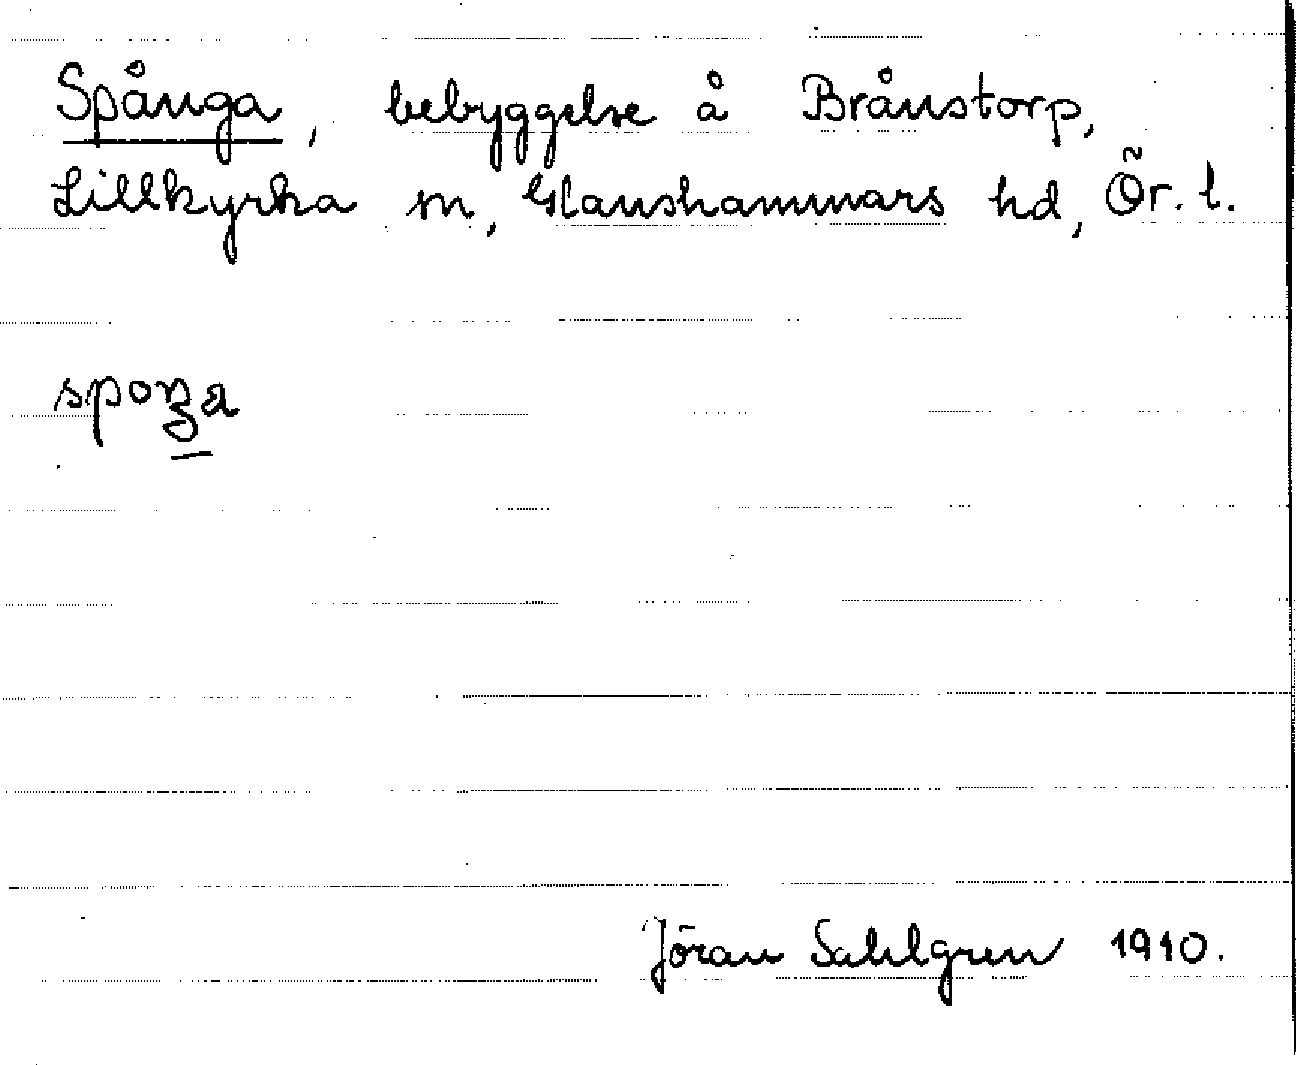 Spånga, bebyggelse å Brånstorp,
Lillkyrka sn, Glanshammars hd, Ör. l.
spoŋa
Jöran Sahlgren 1910.